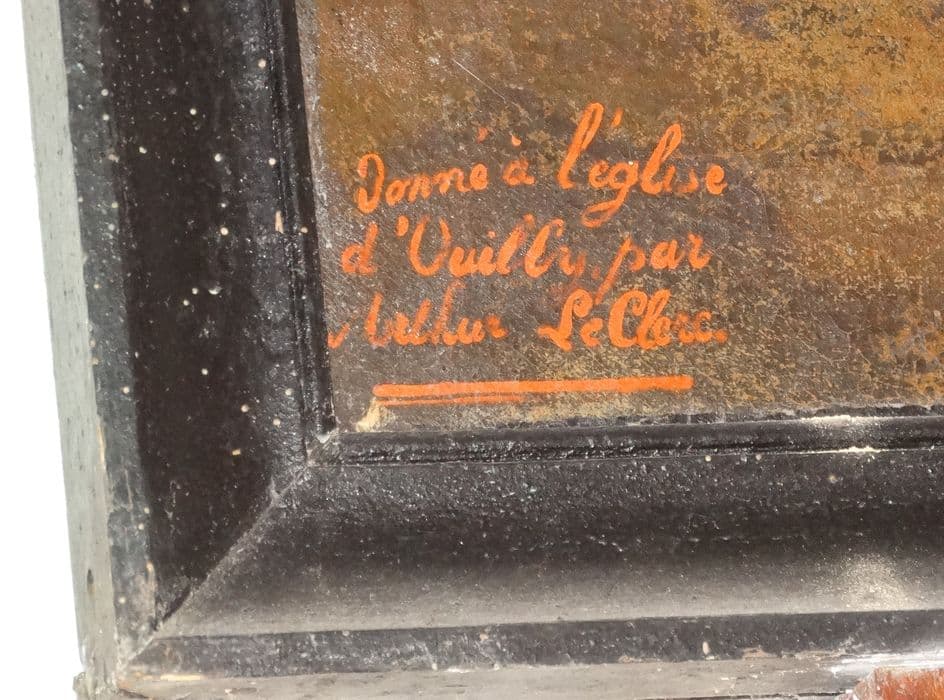 Donné à l'église
d'Vuilly, par
Arthur LeClerc.